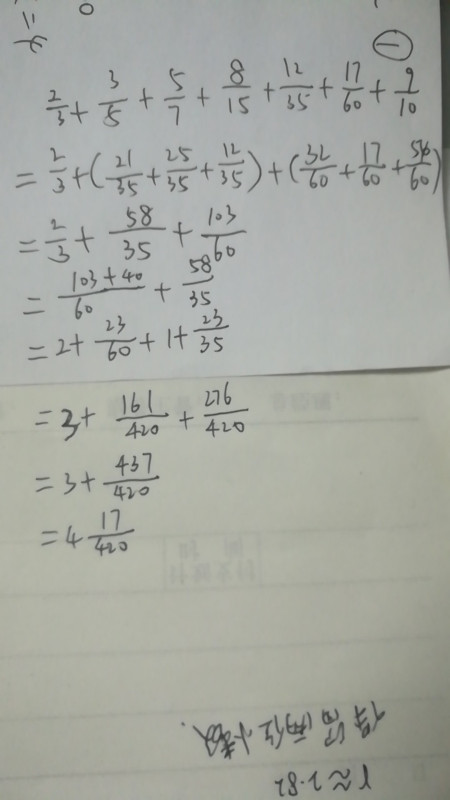 一
2/3 + 3/5 + 5/7 + 8/15 + 12/35 + 17/60 + 9/10
= 2/3 + (21/35 + 25/35 + 12/35) + (32/60 + 17/60 + 54/60)
= 2/3 + 58/35 + 103/60
= (103+40)/60 + 58/35
= 2 + 23/60 + 1 + 23/35
= 3 + 161/420 + 276/420
= 3 + 437/420
= 4 17/420
保留两位小数.
r≈2.82